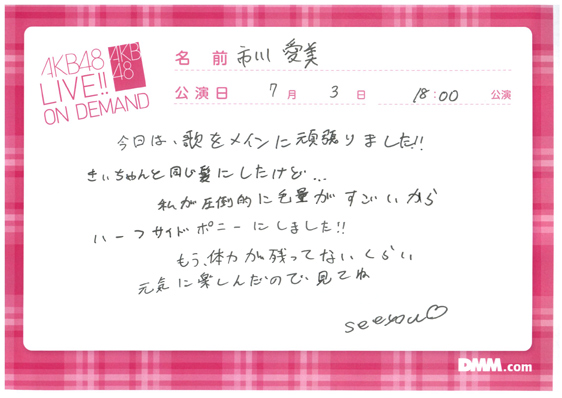 AKB48
LIVE!!
ON DEMAND
AKB
48
名前 市川 愛美
公演日 7月 3日 18:00 公演
今日は、歌をメインに頑張りました!!
きぃちゃんと同じ髪にしたけど...
私が圧倒的に毛量がすごいから
ハーフサイドポニーにしました!!
もう、体力が残ってないくらい
元気に楽しんだので、見てね
see you♡
DMM.com